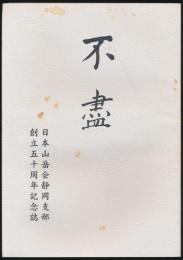 不盡
日本山岳会静岡支部
創立五十周年記念誌